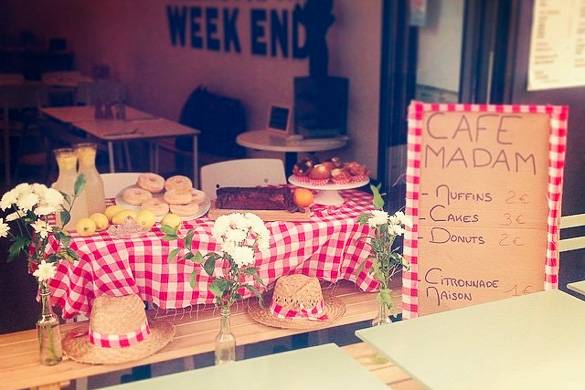 WEEK END
CAFE
MADAM
- MUFFINS 2€
- CAKES 3€
- DONUTS 2€
CITRONNADE
MAISON 1€